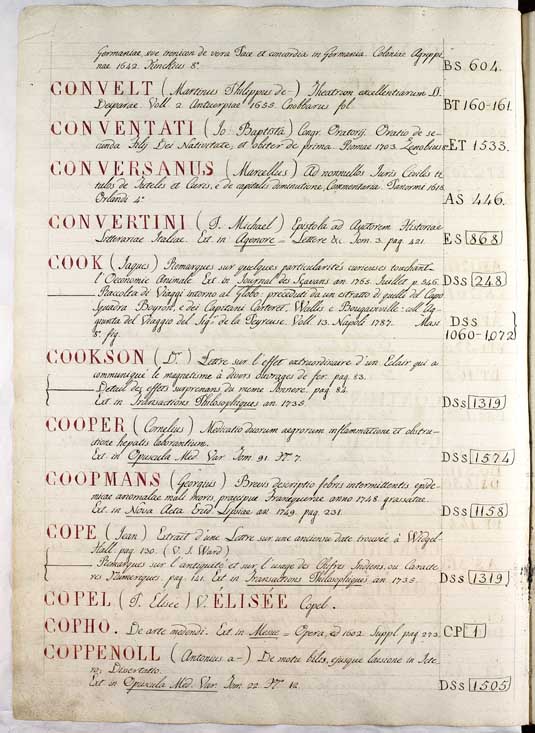 Germaniae, sive cronicon de vera Pace et concordia in Germania. Coloniae Agrippi
nae 1642. Kinckius 8° BS 604.
CONVELT (Martinus Philippus de-) Theatrion excellentiarum D.
Deiparae. Voll. 2 Antverpiae 1655. Cnobbarus fol. BT 160-161.
CONVENTATI (Jo. Baptista) Congr. Oratorij. Oratio de se-
cunda Filij Dei Nativitate, et obiter de prima. Romae 1703. Zenobius 8° ET 1533.
CONVERSANUS (Marcellus) Ad nonnullos Juris Civilis ti-
tulos de Tutelis et Curis, e de capitis diminutione, Commentaria. Panormi 1613.
Orlandi 4° AS 446.
CONVERTINI (F. Michael) Epistola ad Auctorem Historiae
Litterariae Italiae. Ext. in Agenore = Lettere &c. Tom. 3. pag. 421. ES 868
COOK (Jaques) Remarques sur quelques particularités curieuses touchant
l'Oeconomie Animale. Ext. in Journal des Sçavans an. 1765. Juillet p. 246. DSS 248
Raccolta di Viaggi intorno al Globo: preceduti da un estratto di quelli del Capo
Squadra Byron, e dei Capitani Carteret, Wallis e Bougainville: coll' ag-
giunta del Viaggio del Sig. de la Peyreuse. Voll. 13. Napoli 1787. Mast
8° fig. DSS 1060-1072
COOKSON (Dr.) Lettre sur l'effet extraordinaire d'un Eclair qui a
communiqué le magnetisme à divers Ouvrages de fer. pag. 83.
Detail des effets surprenans du meme Tonnere. pag. 84.
Ext. in Transactions Philosophiques an. 1735. DSs 1319
COOPER (Cornelius) Medicatio duorum aegrorum inflammatione et obstru-
ctione hepatis laborantium.
Ext. in Opuscula Med. Var. Tom. 91. N° 7. DSs 1574
COOPMANS (Georgius) Brevis descriptio febris intermittentis epide-
micae anomalae mali moris praecipue Franequerae anno 1748. grassatae.
Ext. in Nova Acta Erud. Lipsiae an. 1749. pag. 231. DSs 1158
COPE (Jean) Extrait d'une Lettre sur une ancienne date trouvée à Widgel-
Hall. pag. 130. (V. J. Ward)
Remarques sur l'antiquité et sur l'usage des Chifres Indiens, ou Caracte-
res Numeriques. pag. 121. Ext. in Transactions Philosophiques an. 1735. DSs 1319
COPEL (F. Elisée) V. ÉLISÉE Copel.
COPHO. De arte medendi. Ext. in Mesue = Opera, ed. 1602. Suppl. pag. 273. CP 1
COPPENOLL (Antonius a-) De motu bilis, ejusque laesione in Icte-
ro, Dissertatio.
Ext. in Opuscula Med. Var. Tom. 22. N° 12. DSs 1505